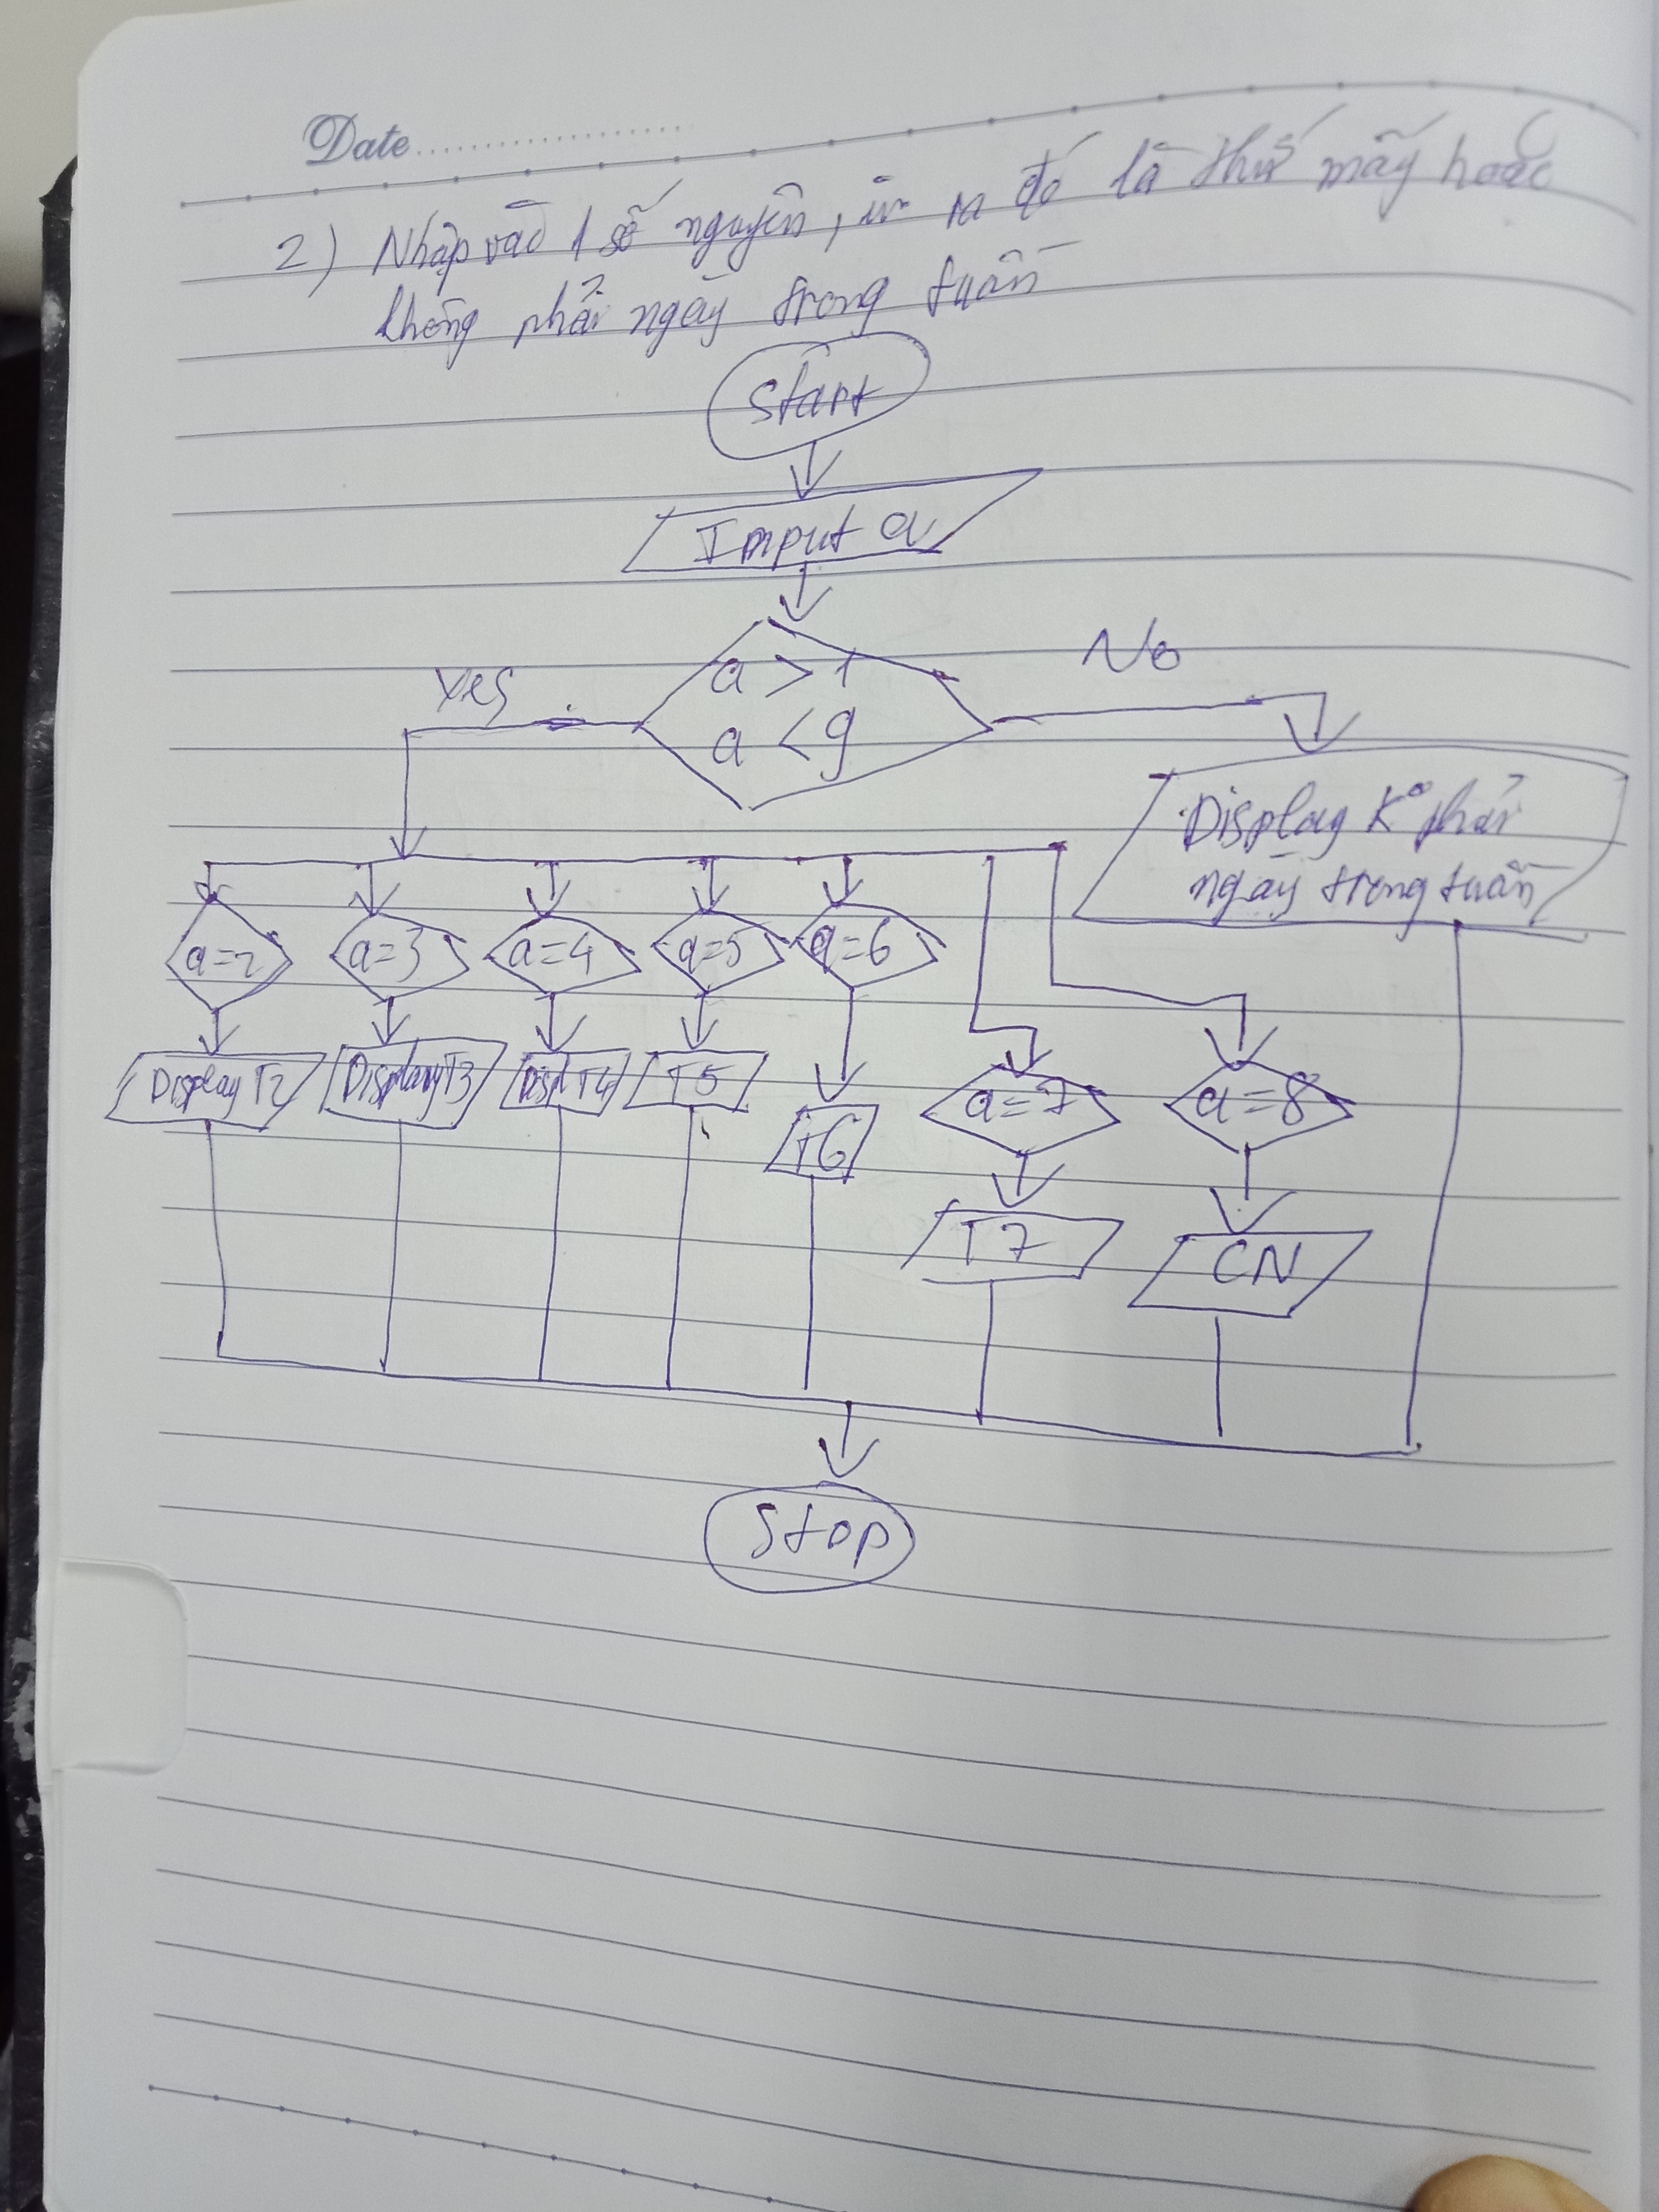 Date
2) Nhập vào 1 số nguyên, in ra đó là thứ mấy hoặc
không phải ngày trong tuần
Start
Input a
a > 1
a < 9
Yes
No
Display K° phải
ngày trong tuần
a=2
a=3
a=4
a=5
a=6
Display T2
Display T3
Displ T4
T5
T6
a=7
a=8
T7
CN
Stop